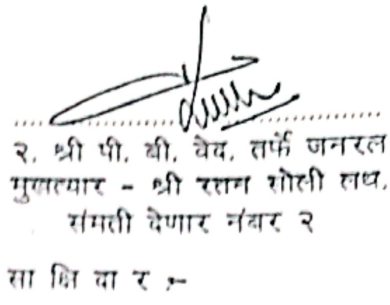 २. श्री पी. बी. वेद, तर्फे जनरल
मुखत्यार - श्री रतन शोली लथ,
संमती देणार नंबर २
सा क्षि दा र :-